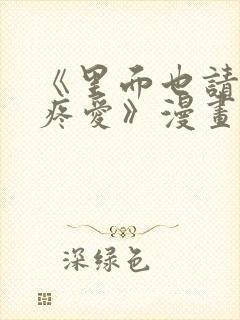 《里而也請
疼愛》漫畫
深绿色